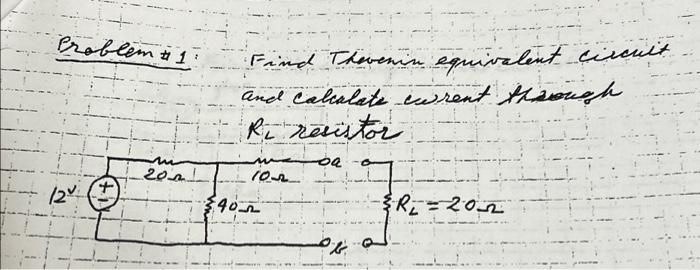 Problem #1: Find Thevenin equivalent circuit
and calculate current through
RL resistor
20Ω 10Ω a
12V + - 40Ω RL = 20Ω
b